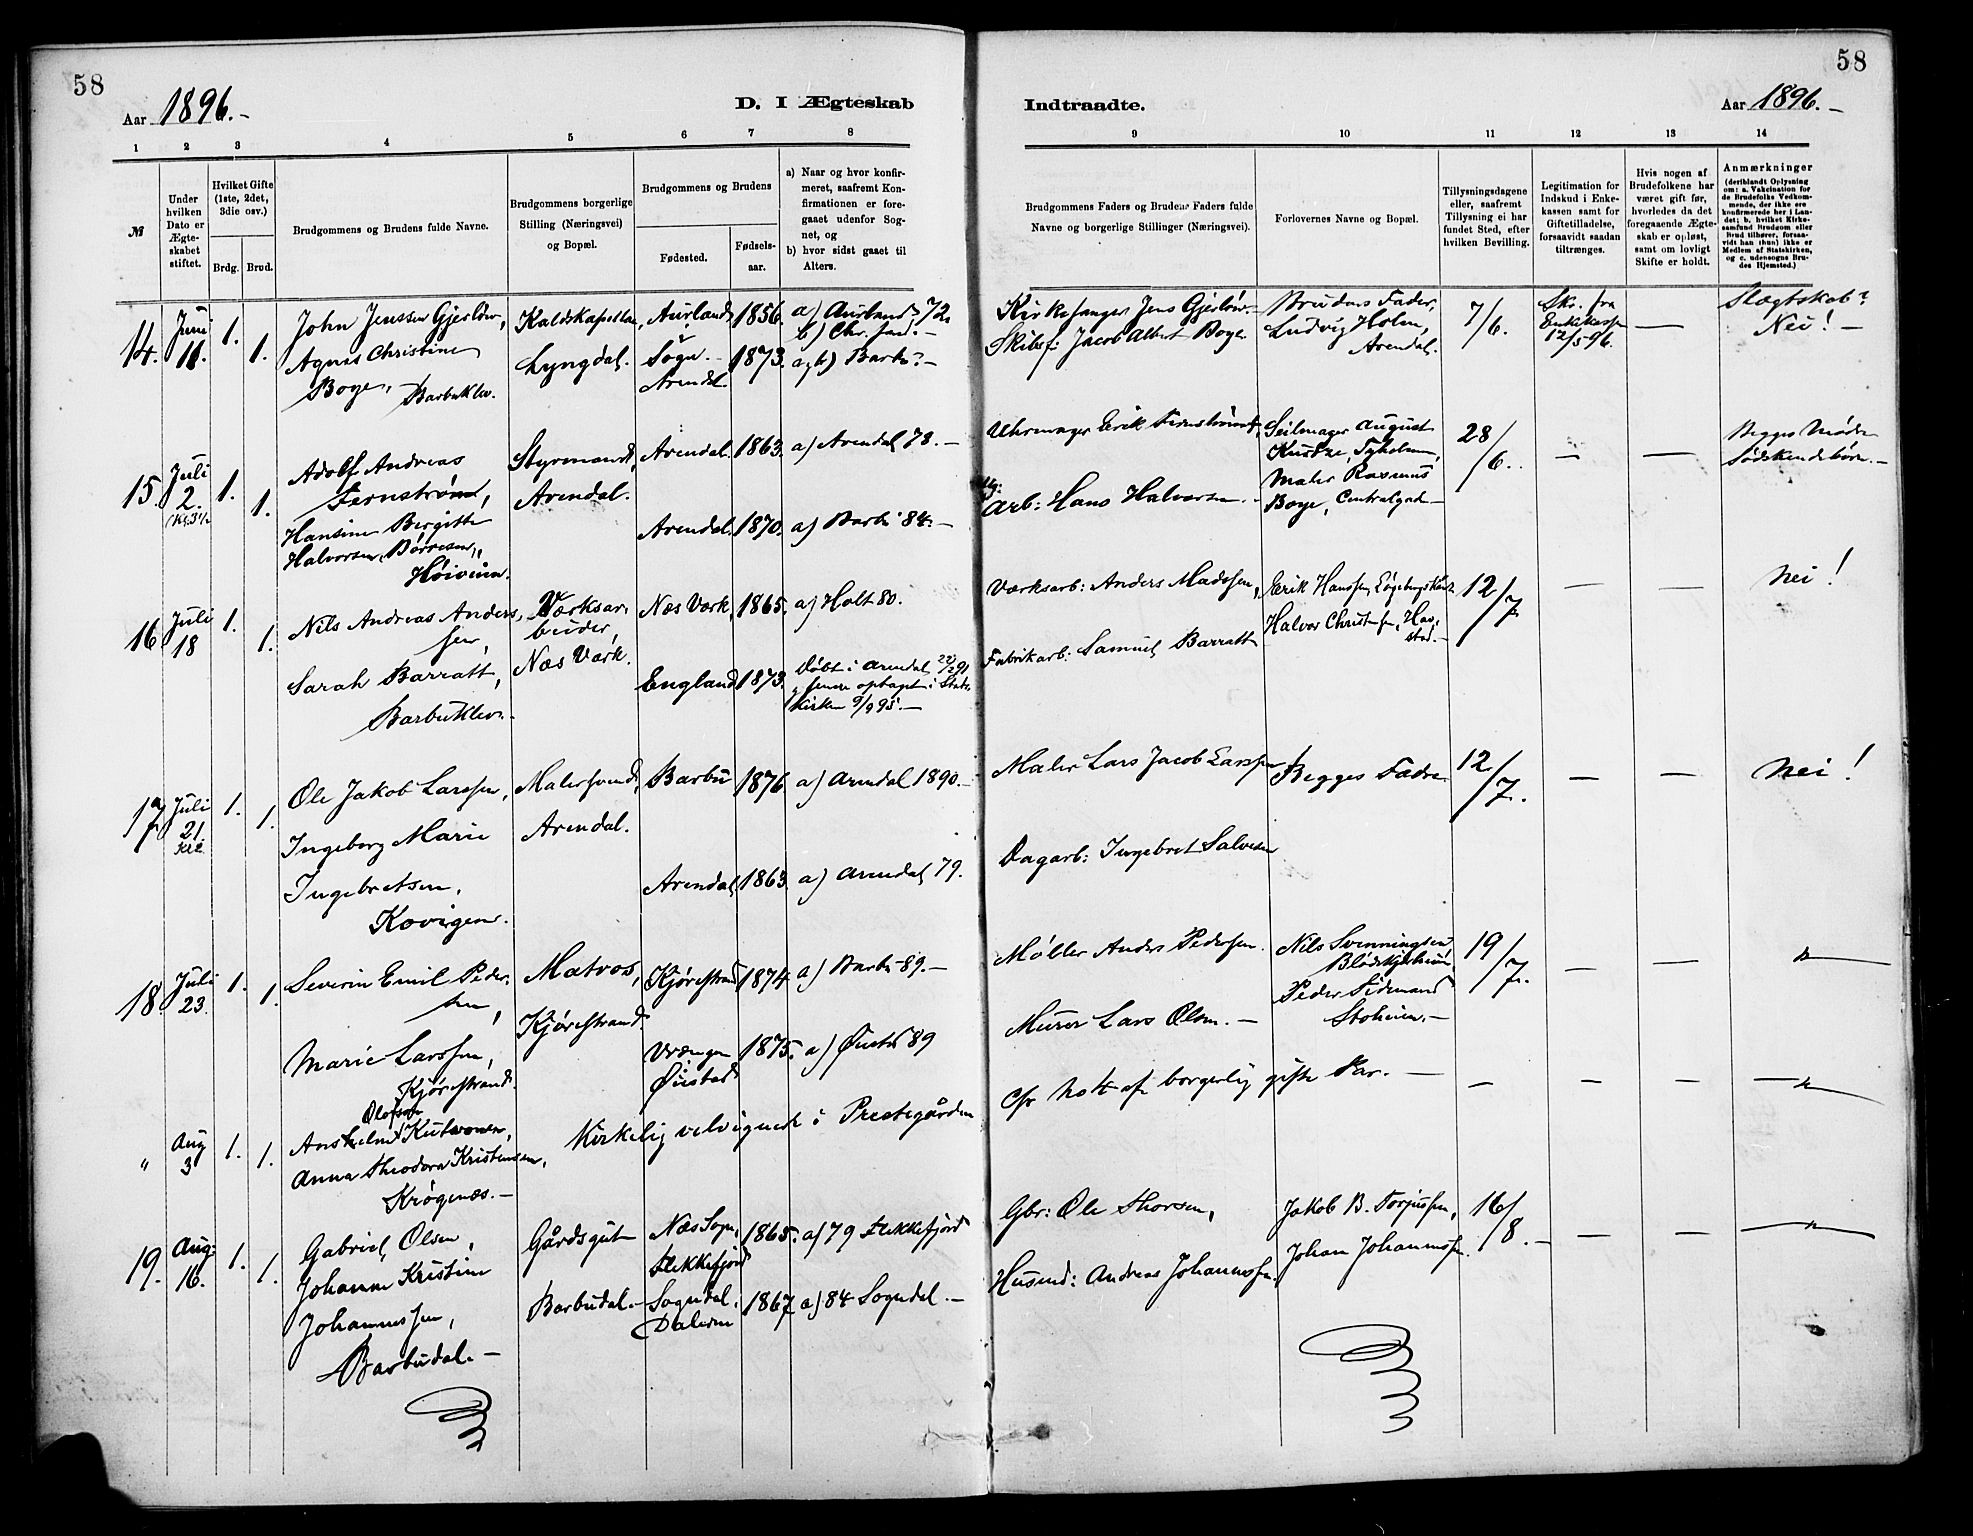 58
Aar 1896.-
D. I Ægteskab
Indtraadte.
Aar 1896.-
58
1 2 3 4 5 6 7 8 9 10 11 12 13 14
№
Under hvilken Dato er Ægteskabet stiftet.
Hvilket Gifte (1ste, 2det, 3die osv.)
Brdg. Brud.
Brudgommens og Brudens fulde Navne.
Brudgommens borgerlige Stilling (Næringsvei) og Bopæl.
Brudgommens og Brudens
Fødested.
Fødselsaar.
a) Naar og hvor konfirmeret, saafremt Konfirmationen er foregaaet udenfor Sognet, og
b) hvor sidst gaaet til Alters.
Brudgommens Faders og Brudens Faders fulde Navne og borgerlige Stillinger (Næringsvei).
Forlovernes Navne og Bopæl.
Tillysningsdagene eller, saafremt Tillysning ei har fundet Sted, efter hvilken Bevilling.
Legitimation for Indskud i Enkekassen samt for Giftetilladelse, forsaavidt saadan tiltrænges.
Hvis nogen af Brudefolkene har været gift før, hvorledes da det foregaaende Ægteskab er opløst, samt om lovligt Skifte er holdt.
Anmærkninger
(deriblandt Oplysning om: a. Vakcination for de Brudefolks Vedkommende, der ikke ere konfirmerede her i Landet; b. hvilket Kirkesamfund Brudgom eller Brud tilhører, forsaavidt han (hun) ikke er Medlem af Statskirken, og c. udensogns Brudes Hjemsted.)
14. Juni 11. 1. 1.
John Jenssen Gjerløw,
Agnes Christine
Boye, Barbuklev.
Kaldskapellan,
Lyngdal.
Aurland,
Sogn.
Arendal.
1856.
1873.
a) Aurland 72.
b) Chr.sand.-
a, b) Barbu.-
Kirkesanger Jens Gjerløw.-
Skibsf: Jacob Albert Boye
Brudens Fader,
Ludvig Holm,
Arendal.
7/6.
Skr. fra
Enkekassen
12/5 96.
—
Slægtskab?
Nei! -
15 Juli 2. 1. 1.
Adolf Andreas
Fernstrøm,
Hansine Bergitte
Halvorsen, Børresen,
Høivium.
Styrmand,
Arendal.
Arendal. 1863. a) Arendal 78.-
Arendal. 1870. a) Barbu 84.-
Uhrmager Erik Fernstrøm,
Arb: Hans Halvorsen.
Seilmager August
Kustze, Tyholmen,
Maler Rasmus
Boye, Centralgad-
28/6.
— —
Begges Mødre
Sødskendebørn.-
16 Juli 18 1. 1.
Nils Andreas Anders
sen,
Sarah Barratt,
Barbuklev.
Værksar
beider,
Næs Værk.
Næs Værk, 1865. a) Holt 80.
England 1873.
Døbt i Arendal 22/2 91
senere optaget i Stats
Kirken 9/9 95.-
Værksarb: Anders Madssen,
Fabrikarb: Samuel Barratt
Erik Hanssen,
Halvor Christ sen,
12/7
— —
Nei!
17 Juli 21. 1. 1.
Ole Jakob Larssen,
Ingeborg Marie
Ingebretsen,
Kovigen.
Malersvend,
Arendal.
Barbu 1876 a) Arendal 1890.-
Arendal, 1863 a) Arendal 79.
Maler Lars Jacob Larssen
Dagarb: Ingebret Salvesen
Begges Fædre
12/7.
— —
Nei!
18. Juli 23. 1. 1.
Severin Emil Peder
sen,
Marie Larssen,
Kjørrestrand.
Matros,
Kjørrestrand.
Kjørrestrand 1874 a) Barbu 89.-
Vrængen
Øiestad
1875. a) Øiestad 89
Møller Anders Pedersen.
Murer Lars Olsen.-
Nils Svenningsen,
Blødekjær
Peder Tidemand
19/7.
— —
"
" Aug 3 1. 1.
Olafsen
Anshelm Kutvonen,
Anna Theodora Kristensen,
Krøgenæs.-
Kirkelig velsignet i Prestegården
Cfr Nott af borgerlig gifte Par.-
— — — "
19. Aug: 16. 1. 1.
Gabriel Olsen,
Johanne Kristine
Johannessen,
Barbudal.-
Gårdsgut
Barbudal.-
Næs Sogn,
Flekkefjord
Sogndal,
Dalerne
1865.
1867
a) 79 Flekkefjord
a) 84 Sogndal.-
Gbr: Ole Thorsen,
Husmd: Andreas Johannessen.
Jakob B. Torjussen,
Johan Johannessen.
16/8.-
— —
"